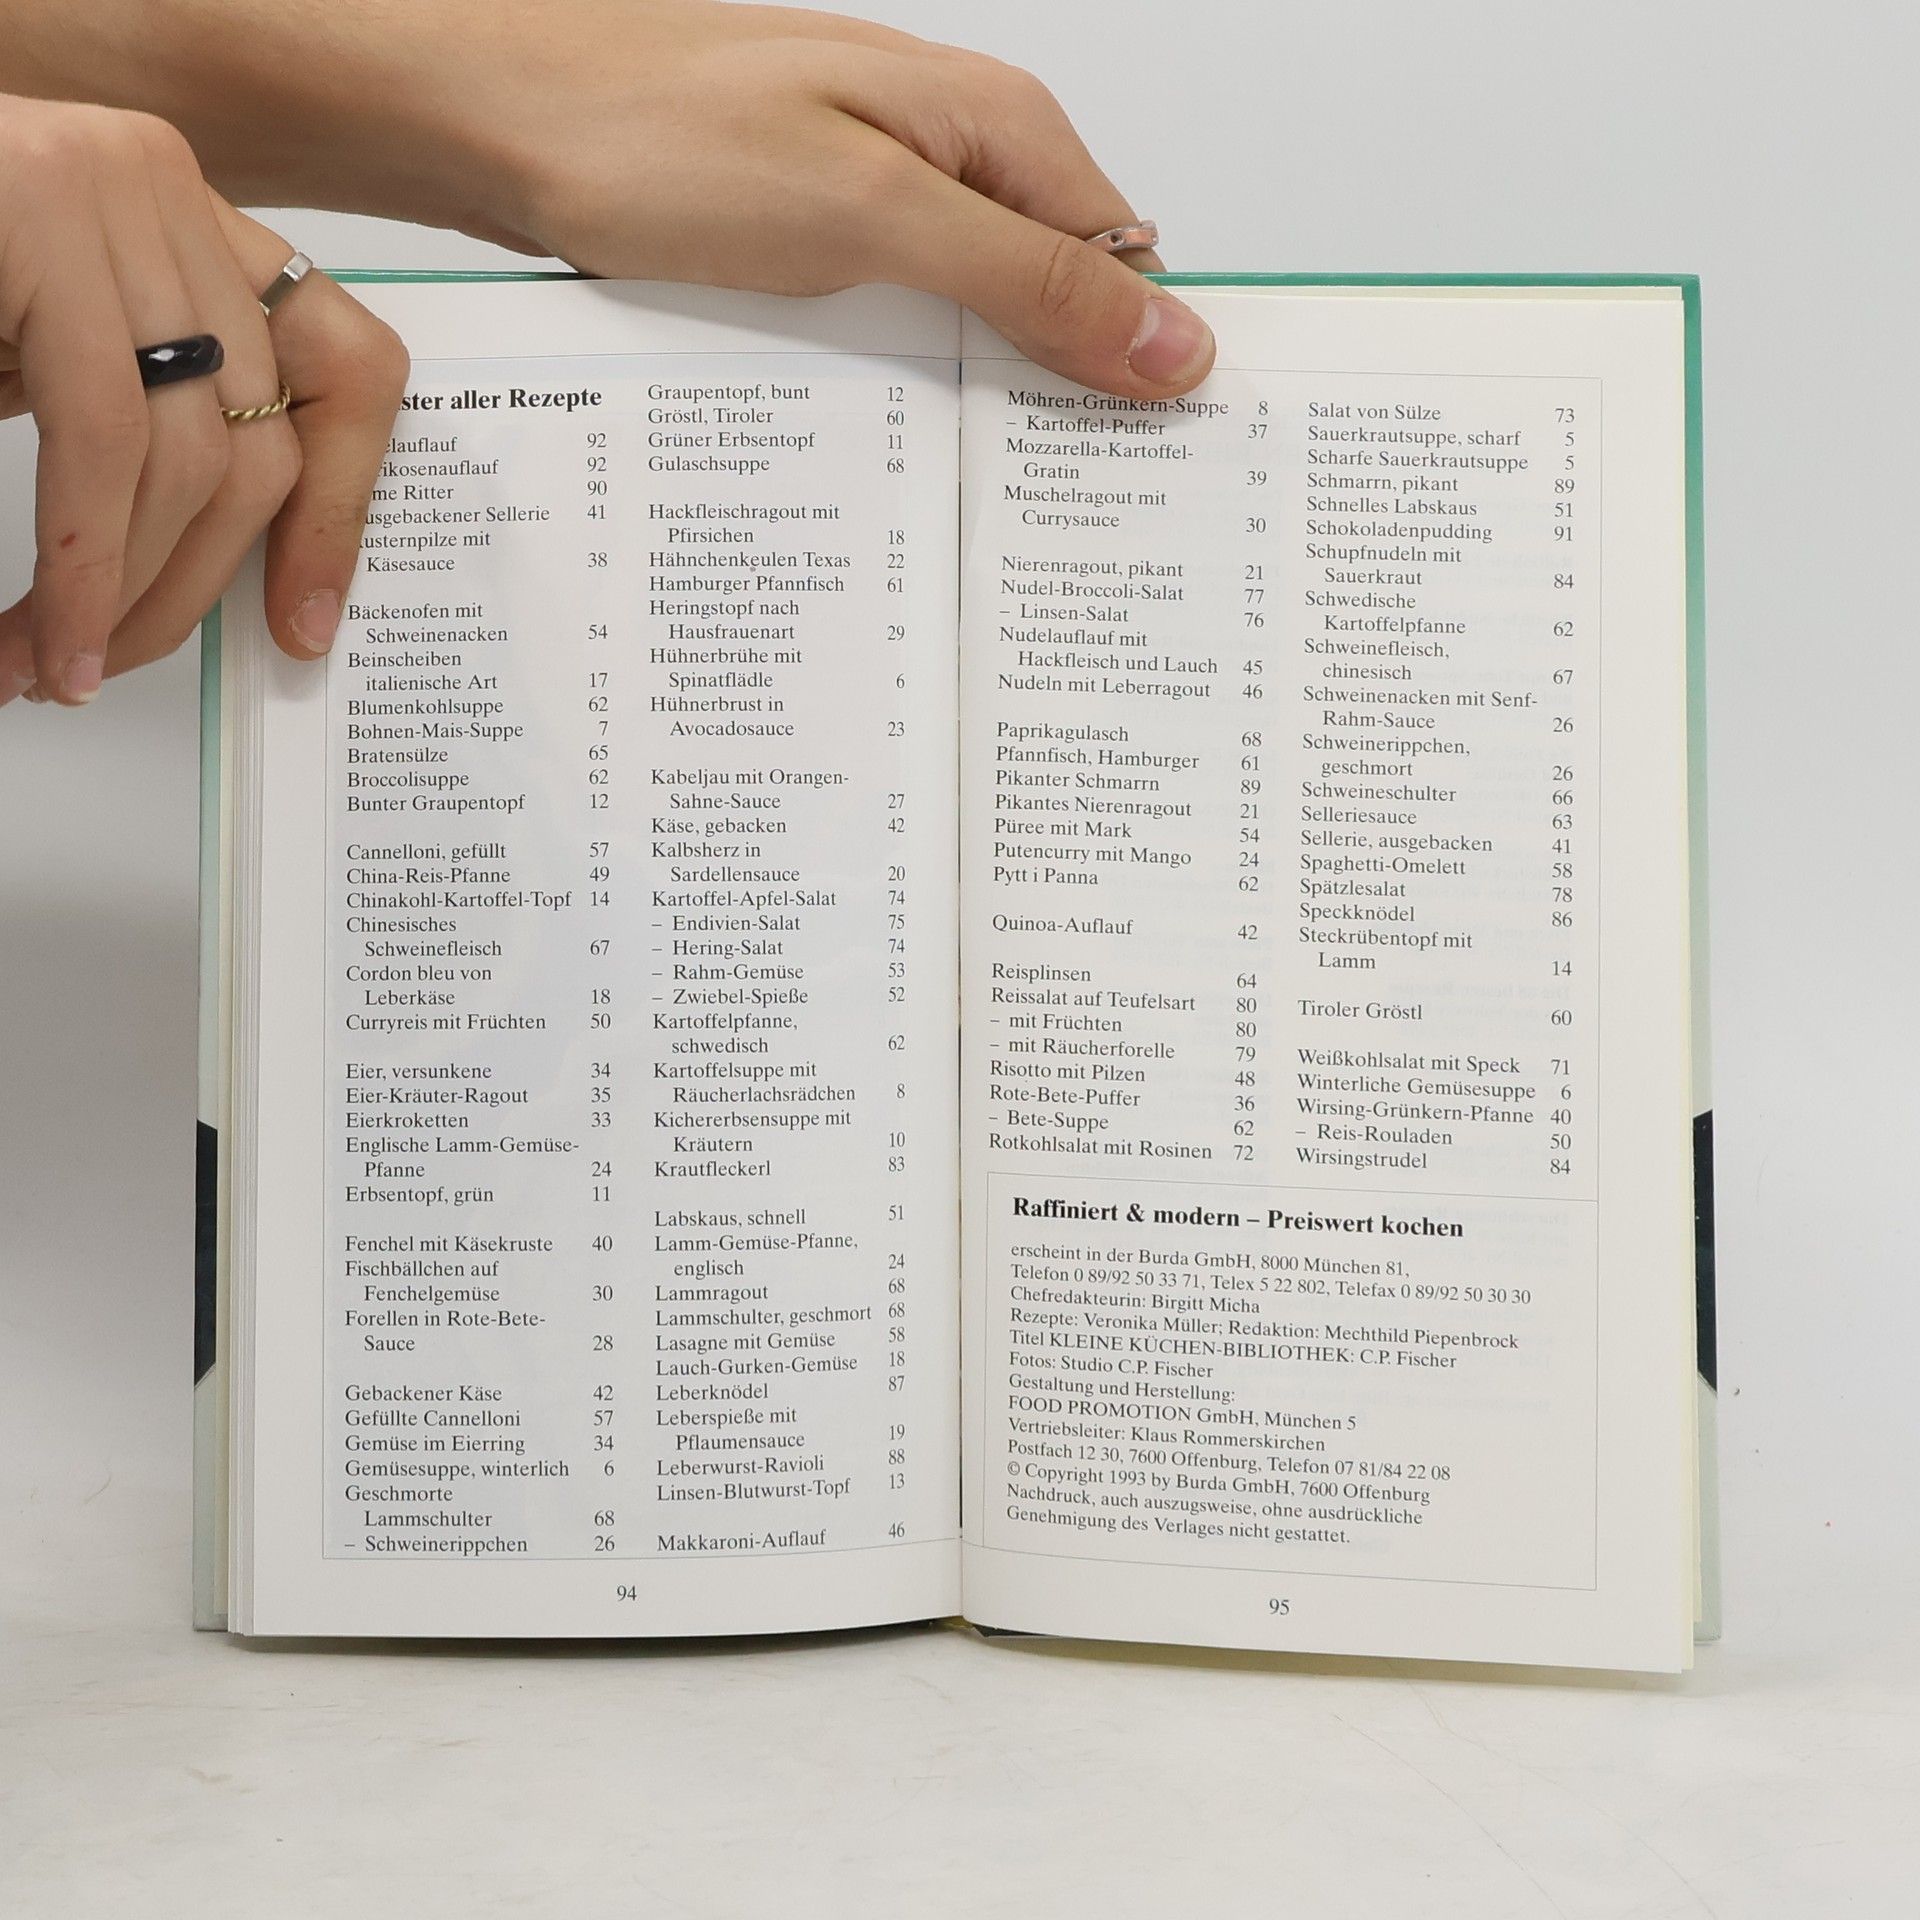 aller Rezepte
92
92
Ritter 90
Sellerie 41
mit
Käsesauce 38
Bäckenofen mit
Schweinenacken 54
Beinscheiben
italienische Art 17
Blumenkohlsuppe 62
Bohnen-Mais-Suppe 7
Bratensülze 65
Broccolisuppe 62
Bunter Graupentopf 12
Cannelloni, gefüllt 57
China-Reis-Pfanne 49
Chinakohl-Kartoffel-Topf 14
Chinesisches
Schweinefleisch 67
Cordon bleu von
Leberkäse 18
Curryreis mit Früchten 50
Eier, versunkene 34
Eier-Kräuter-Ragout 35
Eierkroketten 33
Englische Lamm-Gemüse-
Pfanne 24
Erbsentopf, grün 11
Fenchel mit Käsekruste 40
Fischbällchen auf
Fenchelgemüse 30
Forellen in Rote-Bete-
Sauce 28
Gebackener Käse 42
Gefüllte Cannelloni 57
Gemüse im Eierring 34
Gemüsesuppe, winterlich 6
Geschmorte
Lammschulter 68
– Schweinerippchen 26
Graupentopf, bunt 12
Gröstl, Tiroler 60
Grüner Erbsentopf 11
Gulaschsuppe 68
Hackfleischragout mit
Pfirsichen 18
Hähnchenkeulen Texas 22
Hamburger Pfannfisch 61
Heringstopf nach
Hausfrauenart 29
Hühnerbrühe mit
Spinatflädle 6
Hühnerbrust in
Avocadosauce 23
Kabeljau mit Orangen-
Sahne-Sauce 27
Käse, gebacken 42
Kalbsherz in
Sardellensauce 20
Kartoffel-Apfel-Salat 74
– Endivien-Salat 75
– Hering-Salat 74
– Rahm-Gemüse 53
– Zwiebel-Spieße 52
Kartoffelpfanne,
schwedisch 62
Kartoffelsuppe mit
Räucherlachsrädchen 8
Kichererbsensuppe mit
Kräutern 10
Krautfleckerl 83
Labskaus, schnell 51
Lamm-Gemüse-Pfanne,
englisch 24
Lammragout 68
Lammschulter, geschmort 68
Lasagne mit Gemüse 58
Lauch-Gurken-Gemüse 18
Leberknödel 87
Leberspieße mit
Pflaumensauce 19
Leberwurst-Ravioli 88
Linsen-Blutwurst-Topf 13
Makkaroni-Auflauf 46
94
Möhren-Grünkern-Suppe 8
– Kartoffel-Puffer 37
Mozzarella-Kartoffel-
Gratin 39
Muschelragout mit
Currysauce 30
Nierenragout, pikant 21
Nudel-Broccoli-Salat 77
– Linsen-Salat 76
Nudelauflauf mit
Hackfleisch und Lauch 45
Nudeln mit Leberragout 46
Paprikagulasch 68
Pfannfisch, Hamburger 61
Pikanter Schmarrn 89
Pikantes Nierenragout 21
Püree mit Mark 54
Putencurry mit Mango 24
Pytt i Panna 62
Quinoa-Auflauf 42
Reisplinsen 64
Reissalat auf Teufelsart 80
– mit Früchten 80
– mit Räucherforelle 79
Risotto mit Pilzen 48
Rote-Bete-Puffer 36
– Bete-Suppe 62
Rotkohlsalat mit Rosinen 72
Salat von Sülze 73
Sauerkrautsuppe, scharf 5
Scharfe Sauerkrautsuppe 5
Schmarrn, pikant 89
Schnelles Labskaus 51
Schokoladenpudding 91
Schupfnudeln mit
Sauerkraut 84
Schwedische
Kartoffelpfanne 62
Schweinefleisch,
chinesisch 67
Schweinenacken mit Senf-
Rahm-Sauce 26
Schweinerippchen,
geschmort 26
Schweineschulter 66
Selleriesauce 63
Sellerie, ausgebacken 41
Spaghetti-Omelett 58
Spätzlesalat 78
Speckknödel 86
Steckrübentopf mit
Lamm 14
Tiroler Gröstl 60
Weißkohlsalat mit Speck 71
Winterliche Gemüsesuppe 6
Wirsing-Grünkern-Pfanne 40
– Reis-Rouladen 50
Wirsingstrudel 84
Raffiniert & modern – Preiswert kochen
erscheint in der Burda GmbH, 8000 München 81,
Telefon 0 89/92 50 33 71, Telex 5 22 802, Telefax 0 89/92 50 30 30
Chefredakteurin: Birgitt Micha
Rezepte: Veronika Müller; Redaktion: Mechthild Piepenbrock
Titel KLEINE KÜCHEN-BIBLIOTHEK: C.P. Fischer
Fotos: Studio C.P. Fischer
Gestaltung und Herstellung:
FOOD PROMOTION GmbH, München 5
Vertriebsleiter: Klaus Rommerskirchen
Postfach 12 30, 7600 Offenburg, Telefon 07 81/84 22 08
© Copyright 1993 by Burda GmbH, 7600 Offenburg
Nachdruck, auch auszugsweise, ohne ausdrückliche
Genehmigung des Verlages nicht gestattet.
95